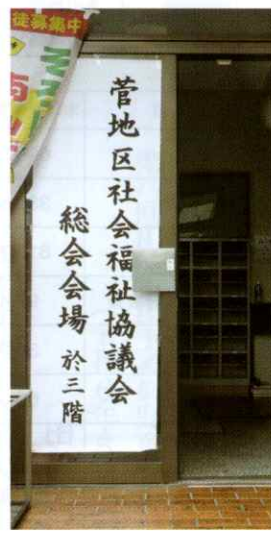 徒募集中
菅地区社会福祉協議会
総会会場 於三階